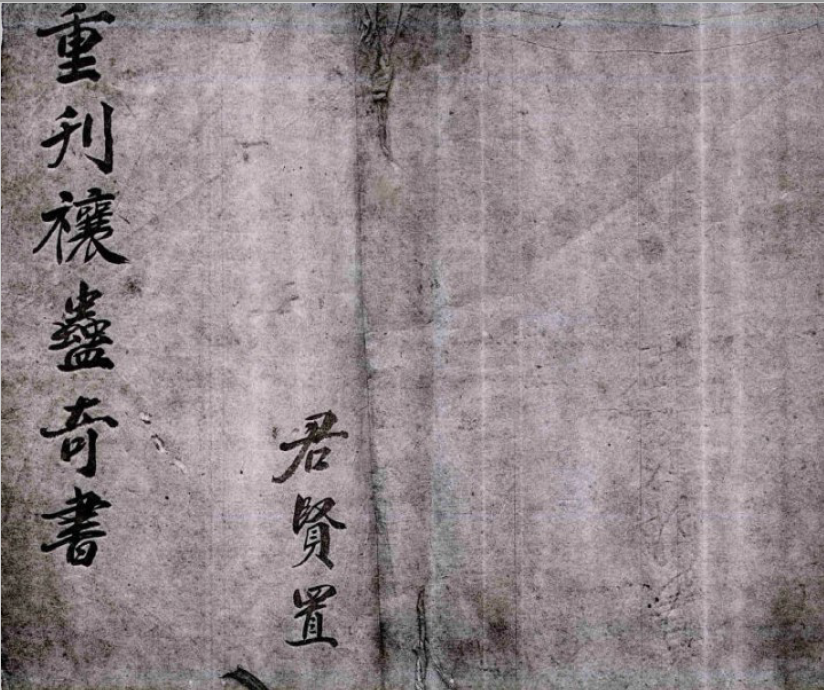 重刊禳蠱奇書
君賢置